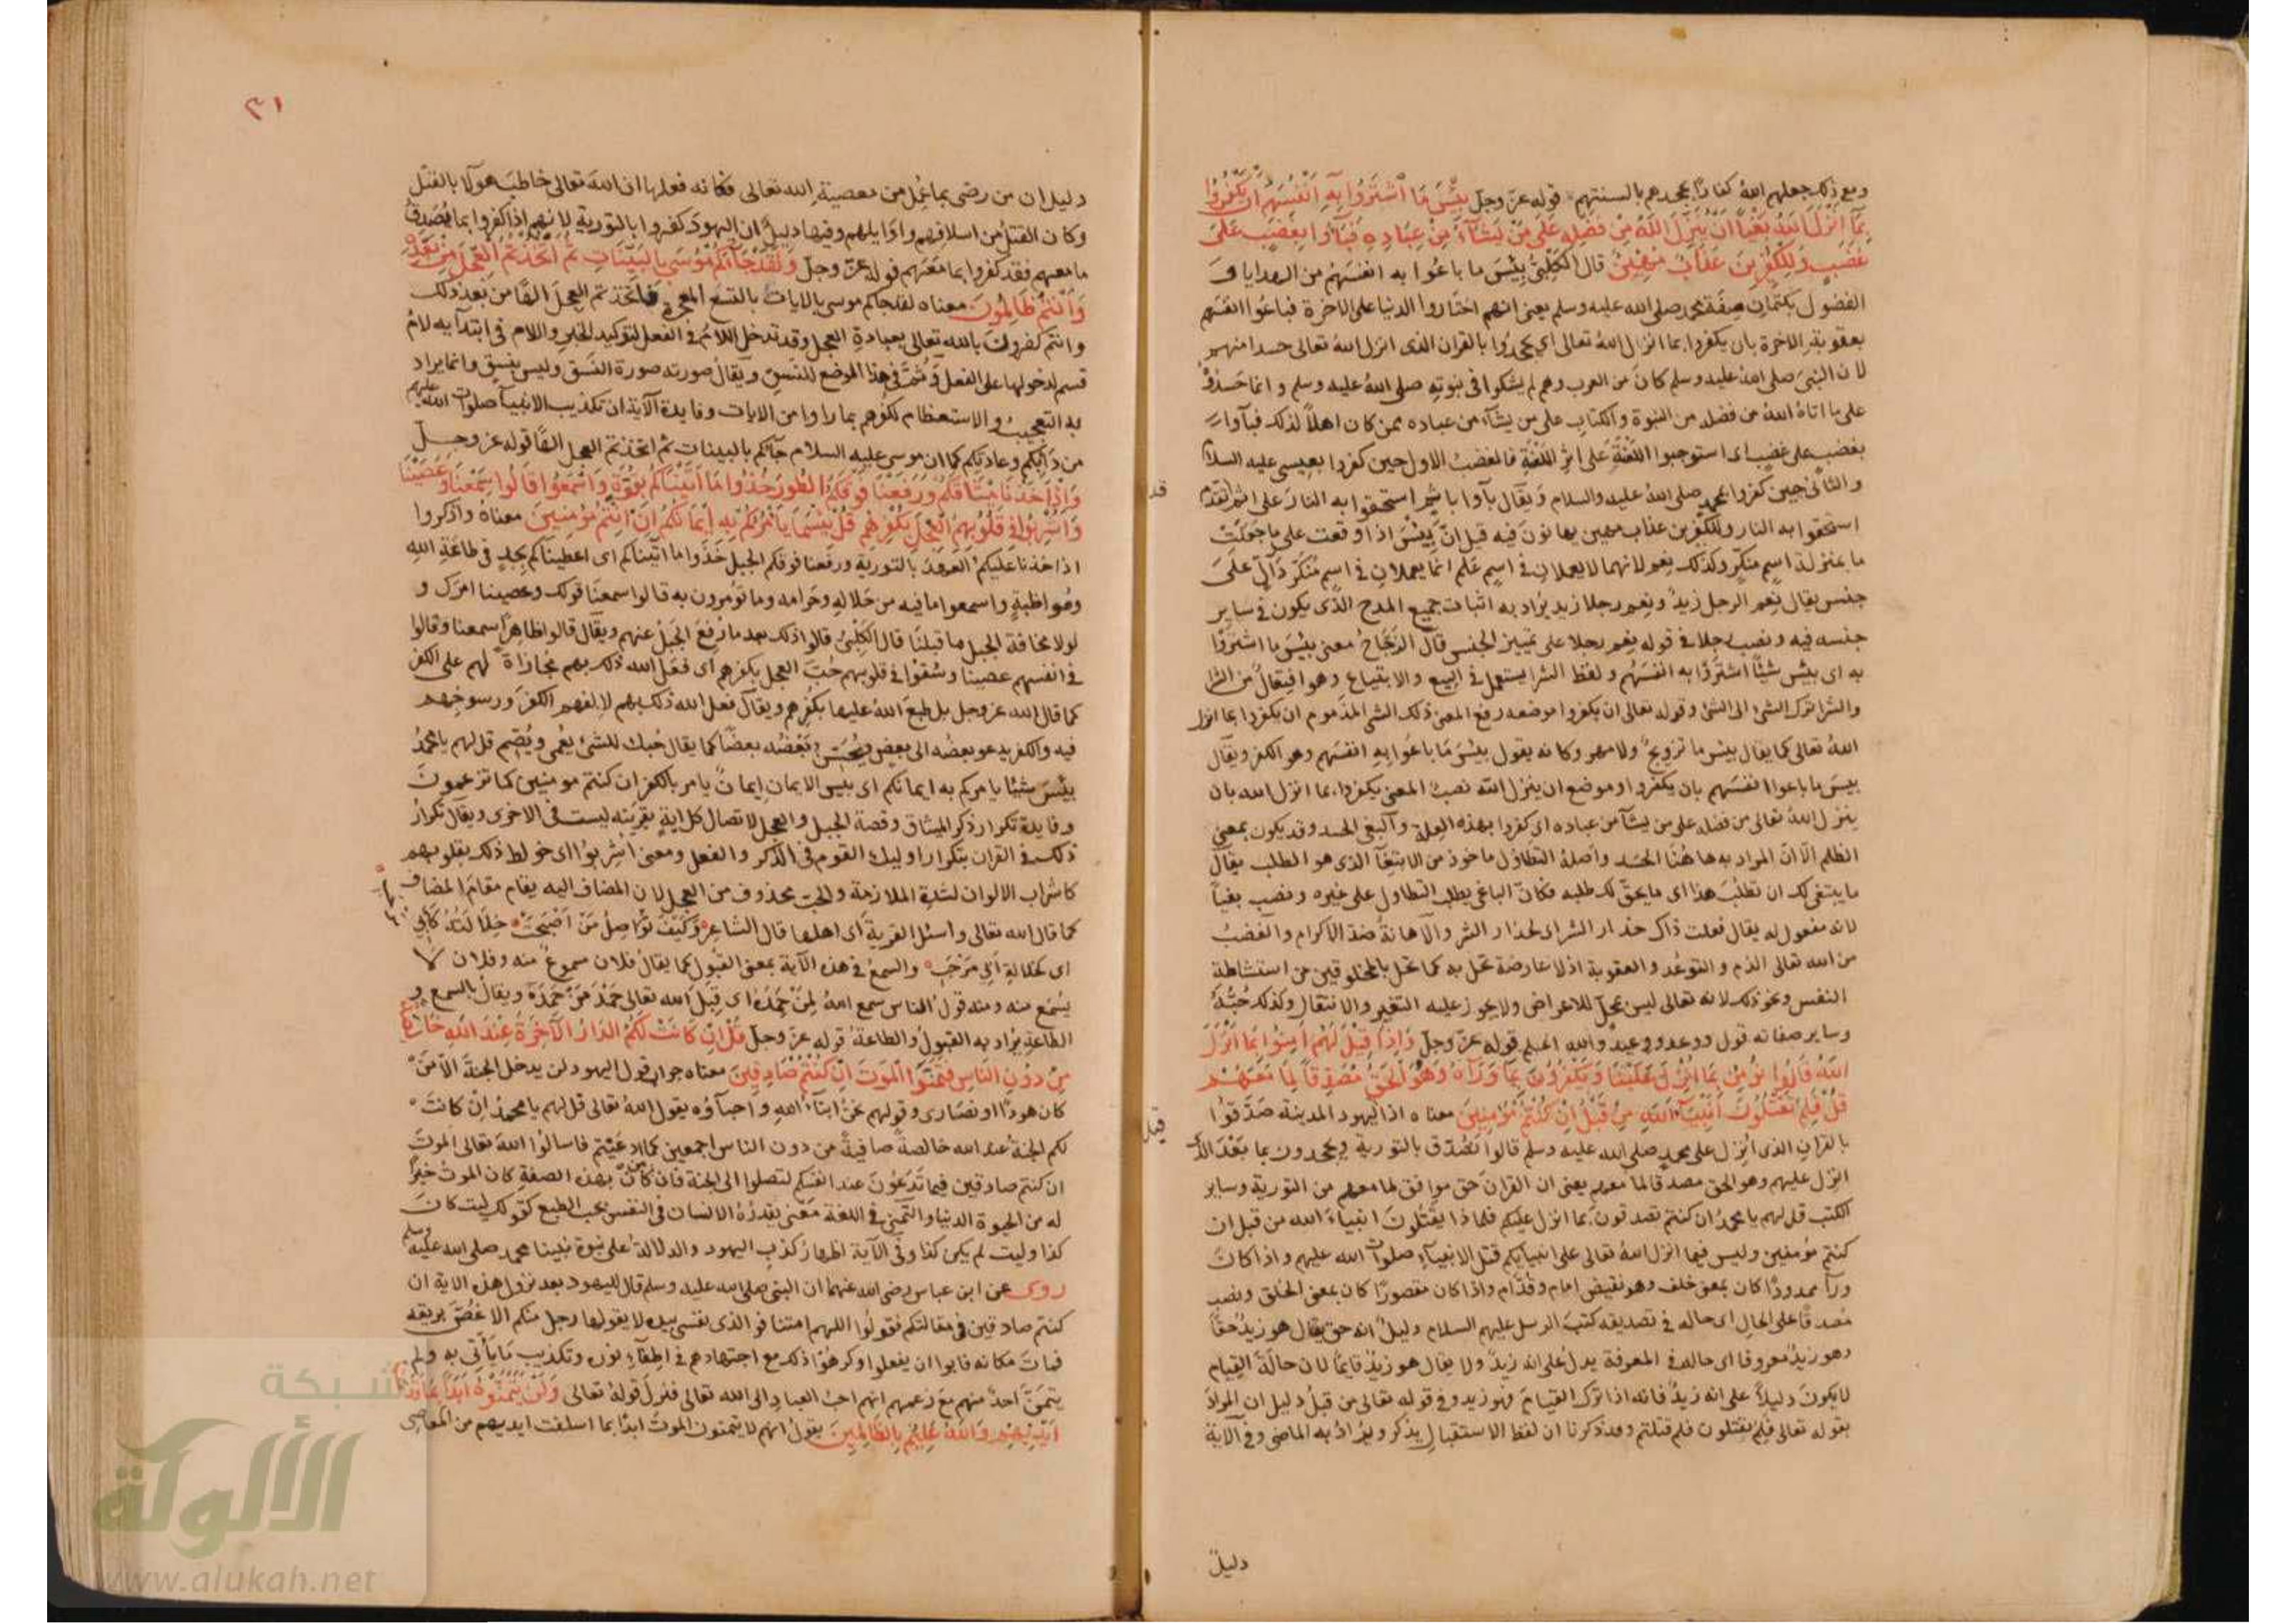 ومع ذلك جعلهم الله كفارا بجحدهم بالسنتهم قوله عز وجل بِئْسَ مَا اشْتَرَوْا بِهِ اَنْفُسَهُمْ اَنْ يَكْفُرُوا
بِمَآ اَنْزَلَ اللهُ بَغْيًا اَنْ يُنَزِّلَ اللهُ مِنْ فَضْلِهِ عَلَى مَنْ يَشَآءُ مِنْ عِبَادِهِ فَبَآءُوا بِغَضَبٍ عَلَى
غَضَبٍ وَلِلْكٰفِرِينَ عَذَابٌ مُهِينٌ قال الكلبي بئس ما باعوا به انفسهم من الهدايا و
الفضول بكتمان صفة محمد صلى الله عليه وسلم يعني انهم اختاروا الدنيا على الاخرة فباعوا انفسهم
بعقوبة الاخرة بان يكفروا بما انزل الله تعالى اي يجحدوا بالقران الذي انزل الله تعالى حسدا منهم
لان النبي صلى الله عليه وسلم كان من العرب وهم لم يشكوا في نبوته صلى الله عليه وسلم وانما حسدوه
على ما اتاه الله من فضله من النبوة والكتاب على من يشآء من عباده ممن كان اهلا لذلك فبآوا
بغضب على غضب اى استوجبوا اللعنة على اثر اللعنة فالغضب الاول حين كفروا بعيسى عليه السلام
والثاني حين كفروا بمحمد صلى الله عليه والسلام ويقال بآوا باثم استحقوا به النار على اثم تقدم
استحقوا به النار وللكفرين عذاب مهين يهانون فيه قيل ان بئس اذا وقعت على ما جعلت
ما بمنزلة اسم منكر وكذلك نعم لانهما لا يعملان في اسم علم انما يعملان في اسم منكر دال على
جنس يقال نعم الرجل زيد ونعم رجلا زيد يراد به اثبات جميع المدح الذى يكون في ساير
جنسه فيه ونصب رجلا في قوله نعم رجلا على تمييز الجنس قال الزجاج معنى بئس ما اشتروا
به اى بئس شيئا اشتروا به انفسهم ولفظ الشرا يستعمل في البيع والابتياع وهو افتعال من الشرا
والشرا ترك الشئ الى الشئ وقوله تعالى ان يكفروا موضعه رفع المعنى ذلك الشئ المذموم ان يكفروا بما انزل
الله تعالى كما يقال بئس ما تزويج ولا مهر وكانه يقول بئس ما باعوا به انفسهم وهو الكفر ويقال
بيس ما باعوا انفسهم بان يكفروا وموضع ان ينزل الله نصب المعنى يكفروا بما انزل الله بان
ينزل الله تعالى من فضله على من يشآ من عباده اى كفروا بهذه العلة والبغي الحسد وقد يكون بمعنى
الظلم الا ان المراد به ها هنا الحسد واصله التطاول ماخوذ من الابتغآ الذى هو الطلب يقال
ما ينبغى لك ان تطلب هذا اى ما يحق لك طلبه فكان الباغى يطلب التطاول على غيره ونصب بغيا
لانه مفعول له يقال فعلت ذاك حذار الشر اى لحذار الشر والاهانة ضد الاكرام والغضب
من الله تعالى الذم والتوعد والعقوبة اذ لا عارضة تحل به كما تحل بالمخلوقين من استشاطة
النفس ونحو ذلك لانه تعالى ليس بمحل للاعراض ولا يجوز عليه التغير والانتقال وكذلك حبه
وساير صفاته قول ووعد ووعيد والله اعلم قوله عز وجل وَاِذَا قِيلَ لَهُمْ اٰمِنُوا بِمَا اَنْزَلَ
اللهُ قَالُوا نُؤْمِنُ بِمَا اُنْزِلَ عَلَيْنَا وَيَكْفُرُونَ بِمَا وَرَآءَهُ وَهُوَ الْحَقُّ مُصَدِّقًا لِمَا مَعَهُمْ
قُلْ فَلِمَ تَقْتُلُونَ اَنْبِيَآءَ اللهِ مِنْ قَبْلُ اِنْ كُنْتُمْ مُؤْمِنِينَ معناه اذا ليهود المدينة صدقوا
بالقران الذى انزل على محمد صلى الله عليه وسلم قالوا نصدق بالتورية ويجحدون بما بعد الذى
انزل عليهم وهو الحق مصدقا لما معهم يعنى ان القران حق موافق لما معهم من التورية وساير
الكتب قل لهم يا محمد ان كنتم تصدقون بما انزل عليكم فلماذا يقتلون انبياء الله من قبل ان
كنتم مؤمنين وليس فيما انزل الله تعالى على انبيآيكم قتل الانبيآء صلوات الله عليهم واذا كان
ورآ ممدودا كان بمعنى خلف وهو نقيض امام وقدام واذا كان مقصورا كان بمعنى الخلق ونصب
مصدقا على الحال اى حاله في تصديقه كتب الرسل عليهم السلام دليل انه حق يقال هو زيد حقا
وهو زيد معروفا اى حاله في المعرفة يدل على انه زيد ولا يقال هو زيد قايما لان حالة القيام
لا يكون دليلا على انه زيد فانه اذا ترك القيام فهو زيد وفي قوله تعالى من قبل دليل ان المراد
بقوله تعالى فلم تقتلون فلم قتلتم وقد ذكرنا ان لفظ الاستقبال يذكر ويراد به الماضى وفي الآية
دليل
٣١
دليل ان من رضى بما عمل من معصية الله تعالى فكانه فعلها ان الله تعالى خاطب هولا بالقتل
وكان القتل من اسلافهم واوايلهم وفيها دليل ان اليهود كفروا بالتورية لانهم اذا كفروا بما يصدق
ما معهم فقد كفروا بما معهم قوله عز وجل وَلَقَدْ جَآءَكُمْ مُوسَى بِالْبَيِّنَاتِ ثُمَّ اتَّخَذْتُمُ الْعِجْلَ مِنْ بَعْدِهِ
وَاَنْتُمْ ظَالِمُونَ معناه لقد جاكم موسى بالايات بالتسع المعجزة فاتخذتم العجل الها من بعد ذلك
وانتم كفرون بالله تعالى بعبادة العجل وقد تدخل اللام في الفعل لتوكيد الخبر واللام فى ابتدآيه لام
قسم لدخولها على الفعل وثم في هذا الموضع للنسق ويقال صورته صورة النسق وليس بنسق وانما يراد
به التعجيب والاستعظام لكفرهم بما راوا من الايات وفايدة الآية ان تكذيب الانبيآ صلوات الله عليهم
من دابكم وعادتكم كما ان موسى عليه السلام جآكم بالبينات ثم اتخذتم العجل الها قوله عز وجل
وَاِذْ اَخَذْنَا مِيثَاقَكُمْ وَرَفَعْنَا فَوْقَكُمُ الطُّورَ خُذُوا مَا اٰتَيْنَاكُمْ بِقُوَّةٍ وَاسْمَعُوا قَالُوا سَمِعْنَا وَعَصَيْنَا
وَاُشْرِبُوا فِي قُلُوبِهِمُ الْعِجْلَ بِكُفْرِهِمْ قُلْ بِئْسَمَا يَاْمُرُكُمْ بِهِ اِيمَانُكُمْ اِنْ كُنْتُمْ مُؤْمِنِينَ معناه واذكروا
اذ اخذنا عليكم العهود بالتورية ورفعنا فوقكم الجبل خذوا ما اتيناكم اى اعطيناكم بجد في طاعة الله
ومواظبة واسمعوا ما فيه من حلاله وحرامه وما تؤمرون به قالوا سمعنا قولك وعصينا امرك و
لولا مخافة الجبل ما قبلنا قال الكلبى قالوا ذلك بعد ما رفع الجبل عنهم ويقال قالوا ظاهرا سمعنا وقالوا
في انفسهم عصينا وسقوا في قلوبهم حب العجل بكفرهم اى فعل الله ذلك بهم مجازاة لهم على الكفر
كما قال الله عز وجل بل طبع الله عليها بكفرهم ويقال فعل الله ذلك بهم لالفهم الكفر ورسوخهم
فيه والكفر يدعو بعضه الى بعض ويحسن بعضه بعضا كما يقال حبك للشئ يعمى ويصم قل لهم يا محمد
بئس شيئا يامركم به ايمانكم اى بيس الايمان ايمان يامر بالكفر ان كنتم مومنين كما تزعمون
وفايدة تكرار ذكر الميثاق وقصة الجبل والعجل لاتصال كل اية بقرينة ليست في الاخرى ويقال تكرار
ذلك في القران بتكرار اوليك القوم فى الذكر والفعل ومعنى اشربوا اى خولط ذلك بقلوبهم
كاشراب الالوان لشدة الملازمة والحب محذوف من العجل لان المضاف اليه يقام مقام المضاف
كما قال الله تعالى واسئل القرية اى اهلها قال الشاعر وَكَيْفَ تُوَاصِلُ مَنْ اَصْبَحَتْ خِلَالَتُهُ كَاَبِي
اى كخلالة ابي مرحب والسمع في هذه الآية بمعنى القبول كما يقال فلان مسموع منه وفلان لا
يسمع منه ومنه قول الناس سمع الله لمن حمده اى قبل الله تعالى حمد من حمده ويقال بالسمع و
الطاعة يراد به القبول والطاعة قوله عز وجل قُلْ اِنْ كَانَتْ لَكُمُ الدَّارُ الْآخِرَةُ عِنْدَ اللهِ خَالِصَةً
مِنْ دُونِ النَّاسِ فَتَمَنَّوُا الْمَوْتَ اِنْ كُنْتُمْ صَادِقِينَ معناه جواب قول اليهود لن يدخل الجنة الا من
كان هودا او نصارى وقولهم نحن ابنآء الله واحبآؤه يقول الله تعالى قل لهم يا محمد ان كانت
لكم الجنة عند الله خالصة صافية من دون الناس اجمعين كما ادعيتم فاسالوا الله تعالى الموت
ان كنتم صادقين فيما تدعون عند انفسكم لتصلوا الى الجنة فان من كان بهذه الصفة كان الموت خيرا
له من الحيوة الدنيا والتمنى في اللغة معنى يقدره الانسان في النفس بحب الطبع كقولك ليت كان
كذا وليت لم يكن كذا وفي الآية اظهار كذب اليهود والدلالة على نبوة نبينا محمد صلى الله عليه وسلم
روى عن ابن عباس رضى الله عنهما ان النبى صلى الله عليه وسلم قال لليهود بعد نزول هذه الاية ان
كنتم صادقين في مقالتكم فقولوا اللهم امتنا فو الذى نفسى بيده لا يقولها رجل منكم الا غص بريقه
فمات مكانه فابوا ان يفعلوا وكرهوا ذلك مع اجتهادهم في اطفآء نوره وتكذيب ما يأتى به ولم
يتمن احد منهم مع زعمهم انهم احب العباد الى الله تعالى فنزل قوله تعالى وَلَنْ يَتَمَنَّوْهُ اَبَدًا بِمَا قَدَّمَتْ
اَيْدِيهِمْ وَاللهُ عَلِيمٌ بِالظَّالِمِينَ يقول انهم لا يتمنون الموت ابدا بما اسلفت ايديهم من المعاصى
شبكة
الألوكة
www.alukah.net